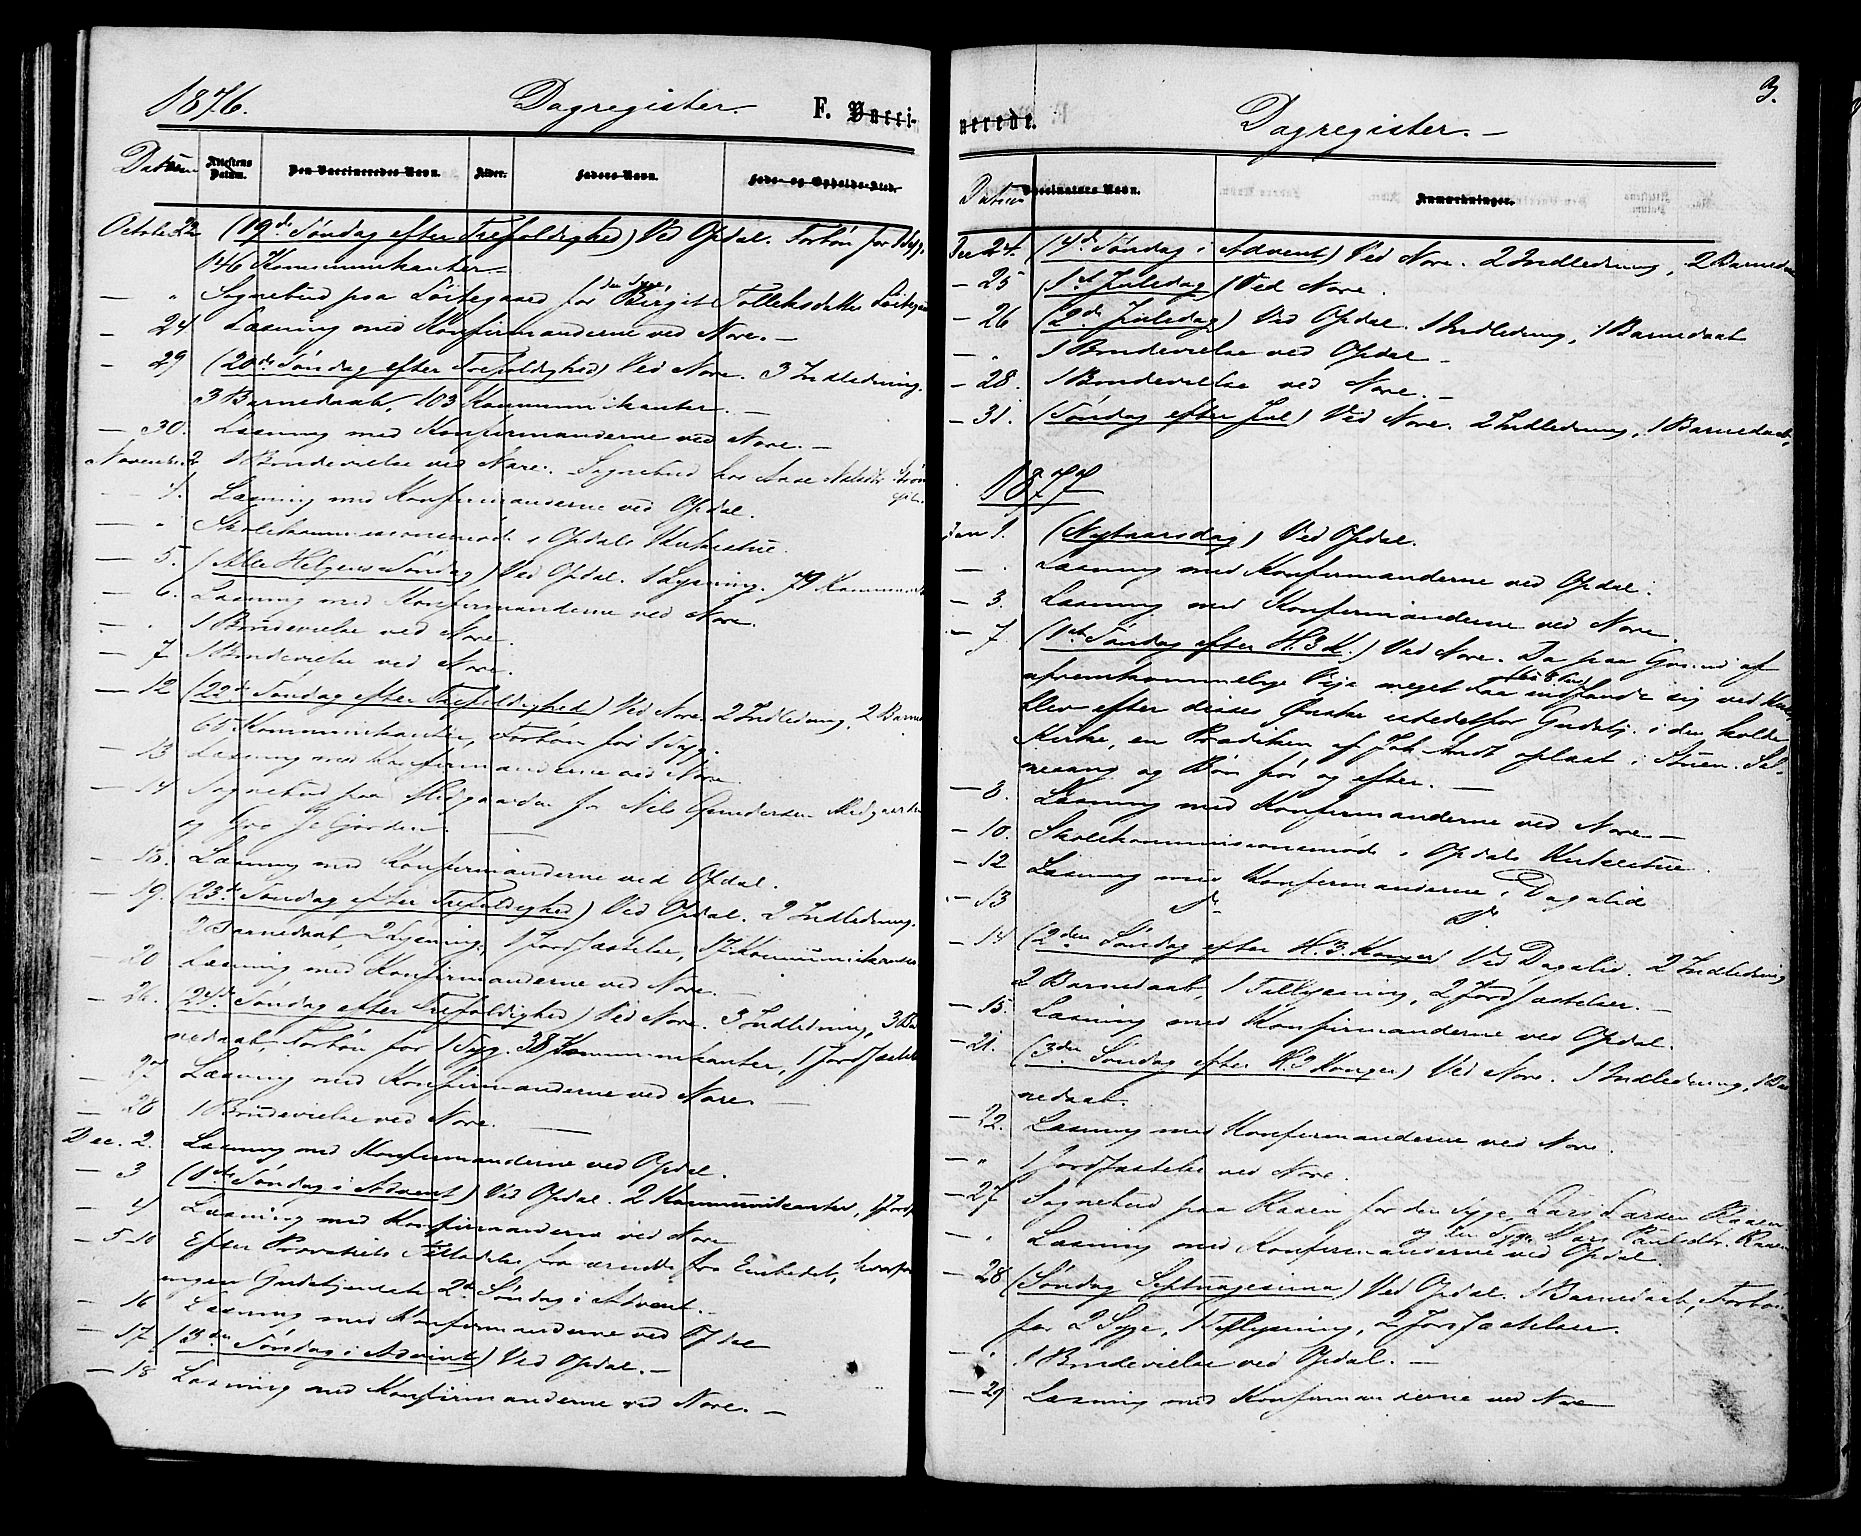 1876. Dagregister. F. Vacci-
Datum Attestens Datum. Den Vaccineredes Navn. Alder. Faders Navn. Føde- og Opholds-Sted.
October 22 (19de Søndag efter Trefoldighed) Ved Opdal. Forbøn for 1 Syg.
146 Kommunikanter.
— " Sognebud paa Løitegaard for den Syge, Birgit
— 24 Læsning med Konfirmanderne ved Nore. —
— 29 (20de Søndag efter Trefoldighed) Ved Nore. 3 Indledning.
3 Barnedaab, 103 Kommunikanter. —
— 30. Læsning med Konfirmanderne ved Nore. —
November 2 1 Brudevielse ved Nore. Sognebud hos Aase
— 4. Læsning med Konfirmanderne ved Opdal.
— " Skolekommissionsmøde i Opdals Kirkestue.
— 5. (Alle Helgens Søndag) Ved Opdal. 1 Lysning. 79 Kommunik
— 6. Læsning med Konfirmanderne ved Nore.
— " 1 Brudevielse ved Nore.
— 7 1 Brudevielse ved Nore.
— 12 (22de Søndag efter Trefoldighed) Ved Nore. 2 Indledning, 2 Barne
Kommunikanter, Forbøn for 1 Syg.
— 13 Læsning med Konfirmanderne ved Nore
— 14 Sognebud paa for Nils Gundersen
og
— 18. Læsning med Konfirmanderne ved Opdal.
— 19. (23de Søndag efter Trefoldighed) Ved Opdal. 2 Indledning.
2 Barnedaab, 2 Lysning, 1 Jordfæstelse, 17 Kommunikanter
— 20 Læsning med Konfirmanderne ved Nore. —
— 26. (24de Søndag efter Trefoldighed) Ved Nore. 3 Indledning, 3 Bar
nedaab, Forbøn for 1 Syg. 38 Kommunikanter, 1 Jordfæstelse
— 27 Læsning med Konfirmanderne ved Nore. —
— 28 1 Brudevielse ved Nore. —
Dec. 2. Læsning med Konfirmanderne ved Opdal.
— 3 (1ste Søndag i Advent) Ved Opdal. 2 Kommunikanter, 1 Jordf
— 4 Læsning med Konfirmanderne ved Nore
— 5–10 Efter Provstiets Tilladelse fraværende fra Embedet, hvorfor
ingen Gudstjeneste 2den Søndag i Advent. —
— 16 Læsning med Konfirmanderne ved Opdal
— 17. (3die Søndag i Advent) Ved Opdal. —
— 18 Læsning med Konfirmanderne ved Nore. —
3.
nerede. Dagregister. —
Datum Vaccinatørs Navn. Anmærkninger.
Dec 24. (4de Søndag i Advent) Ved Nore. 2 Indledning, 2 Barneda
— 25 (1ste Juledag) Ved Nore.
— 26 (2den Juledag) Ved Opdal. 1 Indledning, 1 Barnedaab
— " 1 Brudevielse ved Opdal —
— 28. 1 Brudevielse ved Nore. —
— 31. (Søndag efter Jul) Ved Nore. 2 Indledning, 1 Barnedaab,
1877
Jan 1. (Nytaarsdag) Ved Opdal.
— " Læsning med Konfirmanderne ved Opdal.
— 3. Læsning med Konfirmanderne ved Nore.
— 7 (1ste Søndag efter H. 3 K.) Ved Nore. Da paa Grund af
ufremkommelige Veje meget faa indfandt sig ved Kirk
blev efter disses Ønske istedetfor Gudstj. i den kolde
Kirke, en Prædiken af Joh. Arndt oplæst i Stuen. Sal-
mesang og Bøn før og efter. —
— 8. Læsning med Konfirmanderne ved Nore —
— 10. Skolekommissionsmøde i Opdals Kirkestue.
— 12 Læsning med Konfirmanderne i Dagalid
— 13 do do
— 14 (2den Søndag efter H. 3. Konger) Ved Dagalid. 2 Indledning
2 Barnedaab, 1 Tillysning, 2 Jordfæstelser. —
— 15. Læsning med Konfirmanderne ved Opdal.
— 21. (3die Søndag efter H. 3 Konger) Ved Nore. 1 Indledning, 1 Bar
nedaab.
— 22. Læsning med Konfirmanderne ved Nore.
— " 1 Jordfæstelse ved Nore.
— 27 Sognebud paa Raaen for den syge, Lars Larsen Raaen
og den Syge
— " Læsning med Konfirmanderne ved Opdal.
— 28 (Søndag Septuagesima) Ved Opdal. 1 Barnedaab, Forbøn
for 2 Syge, 1 Tillysning, 2 Jordfæstelser.
— " 1 Brudevielse ved Opdal. —
— 29 Læsning med Konfirmanderne ved Nore